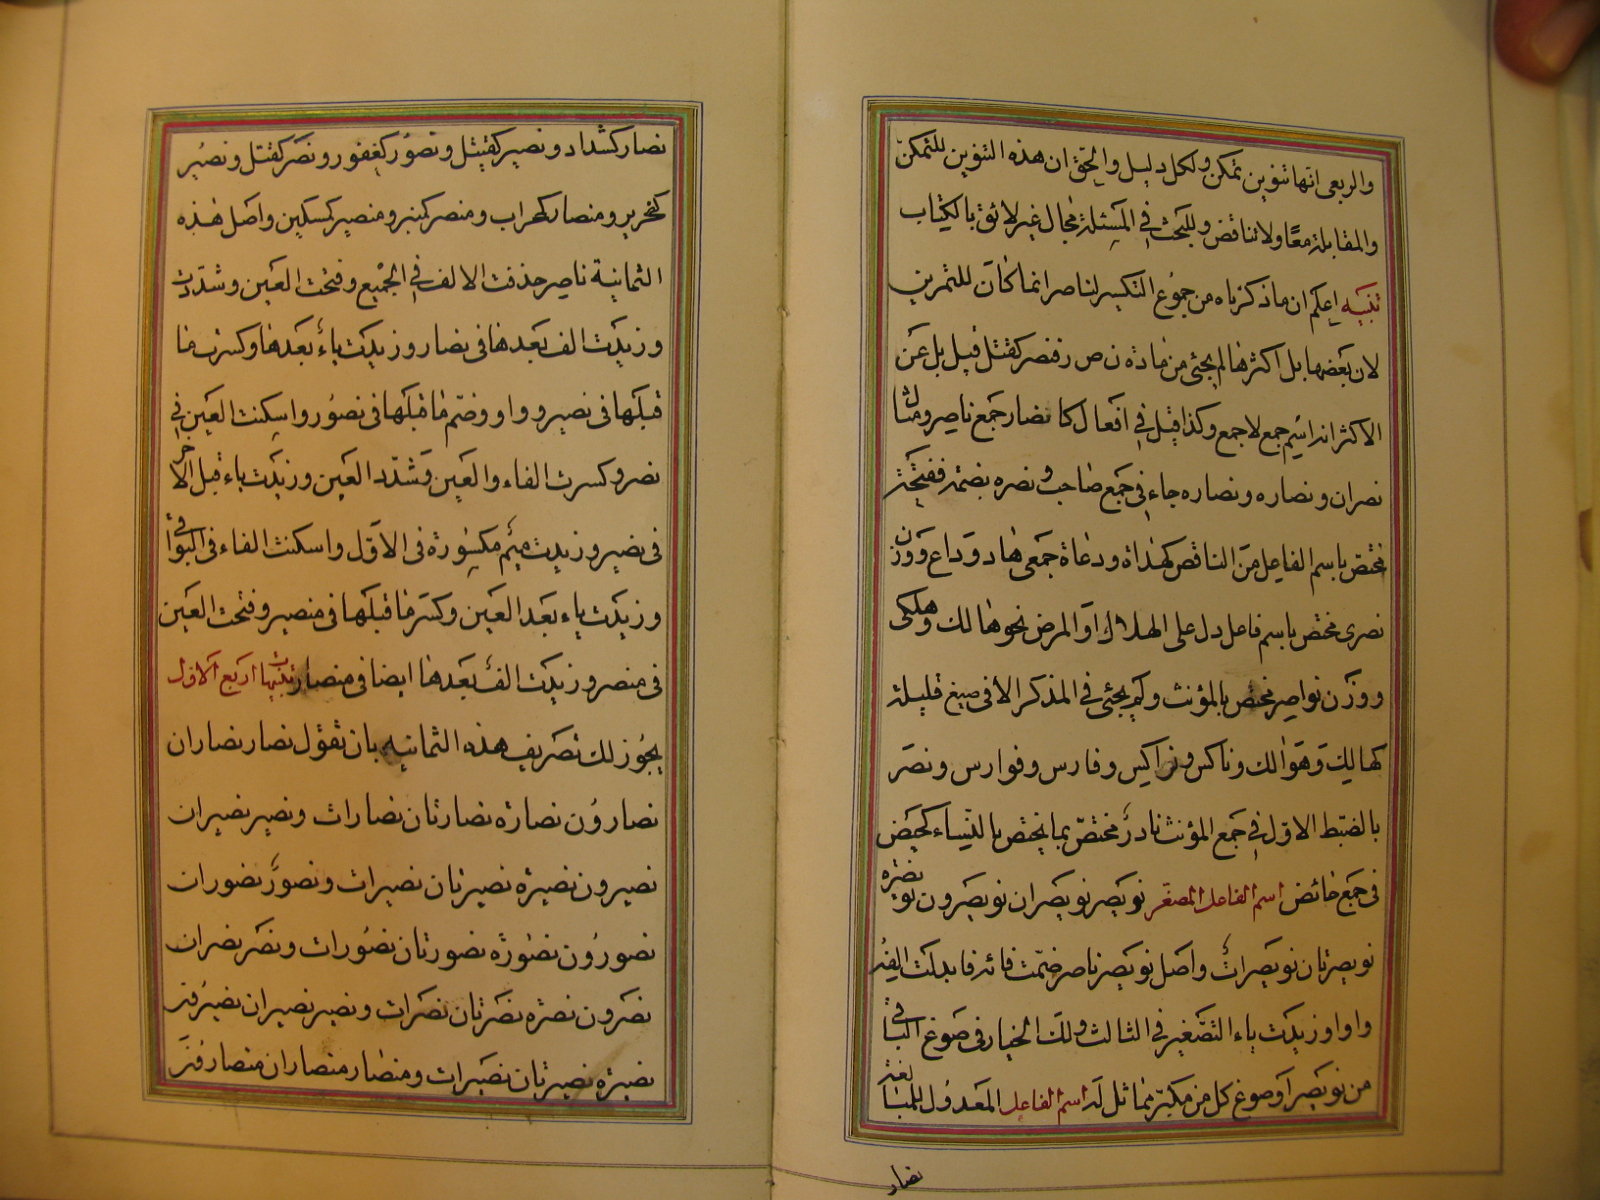 والربعى انها تنوين تمكن ولكل دليل والحق ان هذه التنوين للتمكن
والمقابلة معًا ولا تناقض وللبحث فى المسئلة مجال غير لائق بالكتاب
تنبيه اعلم ان ما ذكرناه من جموع التكسير لناصر انما كان للتمرين
لان بعضها بل اكثرها لم يجئ من مادة ن ص ر فنصر كقتل قيل بل عن
الاكثر انه اسم جمع لا جمع وكذا قيل فى افعال كانصار جمع ناصر ومثال
نصران ونصاره ونصاره جاء فى جمع صاحب ونصره بضمة ففتحة
مختص باسم الفاعل من الناقص كهداة ودعاة جمعى هاد وداع ووزن
نصرى مختص باسم فاعل دل على الهلاك او المرض نحو هالك وهلكى
ووزن نواصر مختص بالمؤنث ولم يجئ فى المذكر الا فى صيغ قليلة
كهالك وهوالك وناكس ونواكس وفارس وفوارس ونصر
بالضبط الاول فى جمع المؤنث نادر مختص بما يختص بالنساء كحيض
فى جمع حائض اسم الفاعل المصغر نويصر نويصران نويصرون نويصرة
نويصرتان نويصرات واصل نويصر ناصر ضمت فائه فابدلت الفه
واوا وزيدت ياء التصغير فى الثالث ولك الخيار فى صوغ البـاقى
من نويصر او صوغ كل من مكبر مماثل له اسم الفاعل المعدول للمبـالغة
نصار
نصار كشداد ونصير كقتيل ونصور كغفور ونصر كقتل ونصير
كنحرير ومنصار كمحراب ومنصر كمنبر ومنصير كمسكين واصل هذه
الثمانية ناصر حذفت الالف فى الجميع وفتحت العين وشددت
وزيدت الف بعدها فى نصار وزيدت ياء بعدها وكسرت ما
قبلها فى نصير وواو وضم ما قبلها فى نصور واسكنت العين فى
نصر وكسرت الفاء والعين وشدد العين وزيدت ياء قبل الاخر
فى نصير وزيدت ميم مكسورة فى الاول واسكنت الفاء فى البواقى
وزيدت ياء بعد العين وكسر ما قبلها فى منصير وفتحت العين
فى منصر وزيدت الف بعدها ايضا فى منصار تنبيهات اربع الاول
يجوز لك تصريف هذه الثمانيه بان تقول نصار نصاران
نصارون نصارة نصارتان نصارات ونصير نصيران
نصيرون نصيرة نصيرتان نصيرات ونصور نصوران
نصورون نصورة نصورتان نصورات ونصر نصران
نصرون نصره نصرتان نصرات ونصير نصيران نصيرون
نصيرة نصيرتان نصيرات ومنصار منصاران منصارون